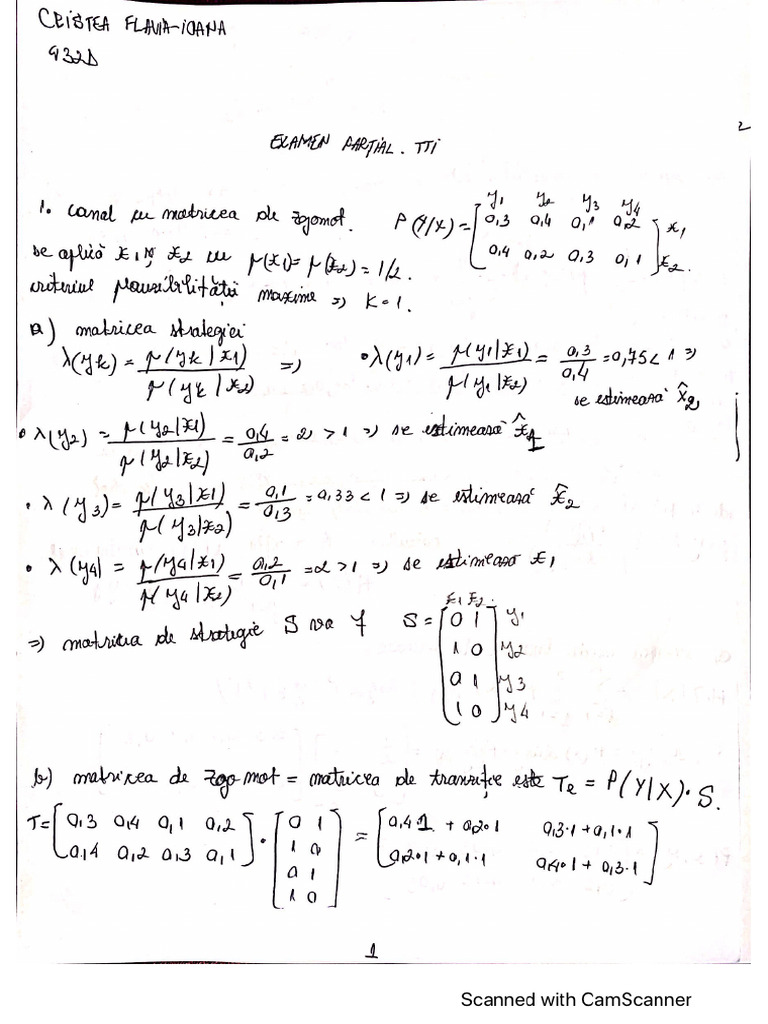 CRISTEA FLAVIA-IOANA
432D
2
EXAMEN PARȚIAL. TTI
1. Canal cu matricea de zgomot. P(Y/X) = [0,3 0,4 0,1 0,2; 0,4 0,2 0,3 0,1] y1 y2 y3 y4 x1 x2.
se aplică x1 și x2 cu p(x1) = p(x2) = 1/2.
criteriul plauzibilității maxime => K=1.
a) matricea strategiei
λ(yk) = p(yk|x1) / p(yk|x2) => • λ(y1) = p(y1|x1) / p(y1|x2) = 0,3 / 0,4 = 0,75 < 1 =>
se estimează x̂2
• λ(y2) = p(y2|x1) / p(y2|x2) = 0,4 / 0,2 = 2 > 1 => se estimează x̂1
• λ(y3) = p(y3|x1) / p(y3|x2) = 0,1 / 0,3 = 0,33 < 1 => se estimează x̂2
• λ(y4) = p(y4|x1) / p(y4|x2) = 0,2 / 0,1 = 2 > 1 => se estimează x1
=> matricea de strategie S va f S = [0 1; 1 0; 0 1; 1 0] x1 x2 y1 y2 y3 y4
b) matricea de zgomot = matricea de tranziție este Te = P(Y|X)·S.
T = [0,3 0,4 0,1 0,2; 0,4 0,2 0,3 0,1] · [0 1; 1 0; 0 1; 1 0] = [0,4·1 + 0,2·1 0,3·1 + 0,1·1; 0,2·1 + 0,1·1 0,4·1 + 0,3·1]
1
Scanned with CamScanner